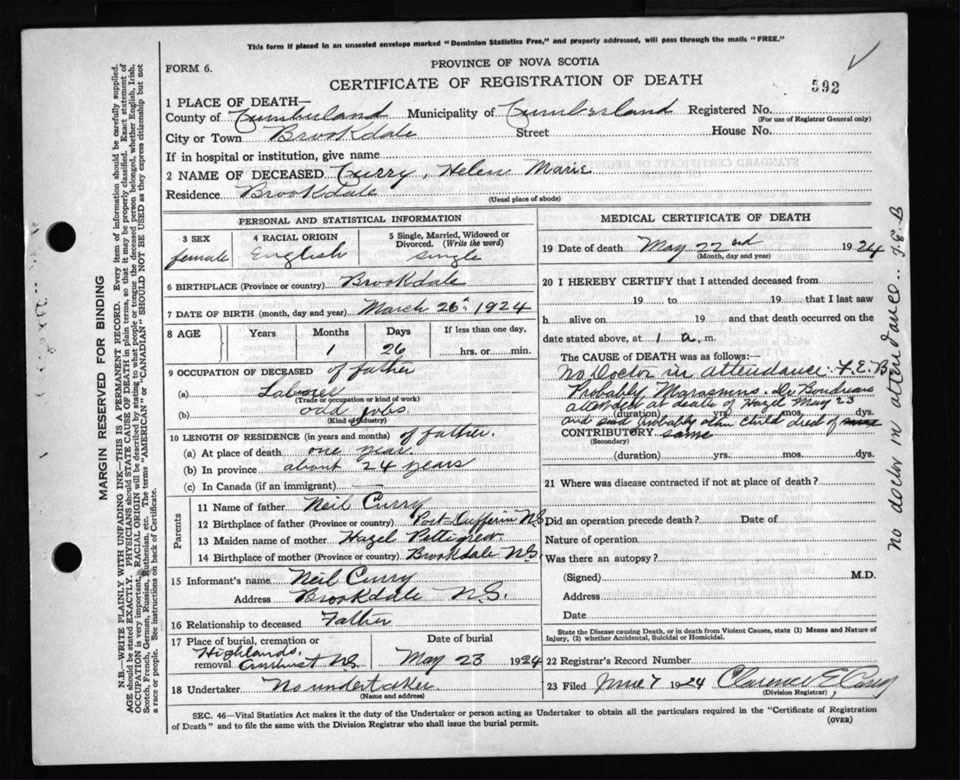 This form if placed in an unsealed envelope marked "Dominion Statistics Free," and properly addressed, will pass through the mails "FREE."
FORM 6.
PROVINCE OF NOVA SCOTIA
CERTIFICATE OF REGISTRATION OF DEATH
592
1 PLACE OF DEATH—
County of Cumberland Municipality of Cumberland Registered No.
(For use of Registrar General only)
City or Town Brookdale Street House No.
If in hospital or institution, give name
2 NAME OF DECEASED Curry, Helen Marie
Residence Brookdale
(Usual place of abode)
PERSONAL AND STATISTICAL INFORMATION
3 SEX 4 RACIAL ORIGIN 5 Single, Married, Widowed or Divorced. (Write the word)
female English single
6 BIRTHPLACE (Province or country) Brookdale
7 DATE OF BIRTH (month, day and year) March 26th 1924
8 AGE Years Months Days If less than one day,
1 26 hrs. or min.
9 OCCUPATION OF DECEASED of father
(a) Laborer
(Trade or occupation or kind of work)
(b) odd jobs
(Kind of industry)
10 LENGTH OF RESIDENCE (in years and months) of father.
(a) At place of death one year.
(b) In province about 24 years
(c) In Canada (if an immigrant) —
Parents
11 Name of father Neil Curry
12 Birthplace of father (Province or country) Port Dufferin N.S
13 Maiden name of mother Hazel Pettigrew
14 Birthplace of mother (Province or country) Brookdale N.S.
15 Informant's name Neil Curry
Address Brookdale N.S.
16 Relationship to deceased Father
17 Place of burial, cremation or removal Highlands, Amherst N.S. Date of burial May 23 1924
18 Undertaker No undertaker
(Name and address)
MEDICAL CERTIFICATE OF DEATH
19 Date of death May 22nd 1924
(Month, day and year)
20 I HEREBY CERTIFY that I attended deceased from
19 to 19 that I last saw
h alive on 19 and that death occurred on the
date stated above, at 1 a. m.
The CAUSE OF DEATH was as follows:
No Doctor in attendance. F.E.B
Probably Marasmus. Dr Boudreau
attended at death of Hazel May 23
(duration) yrs. mos. dys.
and said probably other child died of
CONTRIBUTORY same
(Secondary)
(duration) yrs. mos. dys.
21 Where was disease contracted if not at place of death?
Did an operation precede death? Date of
Nature of operation
Was there an autopsy?
(Signed) M.D.
Address
Date
State the Disease causing Death, or in death from Violent Causes, state (1) Means and Nature of
Injury, (2) whether Accidental, Suicidal or Homicidal.
22 Registrar's Record Number
23 Filed June 7 1924 Clarence E. Casey
(Division Registrar)
SEC. 46—Vital Statistics Act makes it the duty of the Undertaker or person acting as Undertaker to obtain all the particulars required in the "Certificate of Registration
of Death" and to file the same with the Division Registrar who shall issue the burial permit.
(OVER)
MARGIN RESERVED FOR BINDING
N.B.—WRITE PLAINLY WITH UNFADING INK—THIS IS A PERMANENT RECORD. Every item of information should be carefully supplied.
AGE should be stated EXACTLY. PHYSICIANS should STATE CAUSE OF DEATH in plain terms, so that it may be properly classified. Exact statement of
OCCUPATION is very important. RACIAL ORIGIN will be described by stating to what people or tongue the deceased person belonged, whether English, Irish,
Scotch, French, German, Russian, Ruthenian, etc. The terms "AMERICAN" or "CANADIAN" SHOULD NOT BE USED as they express citizenship but not
a race or people. See instructions on back of Certificate.
No doctor in attendance. F.E.B